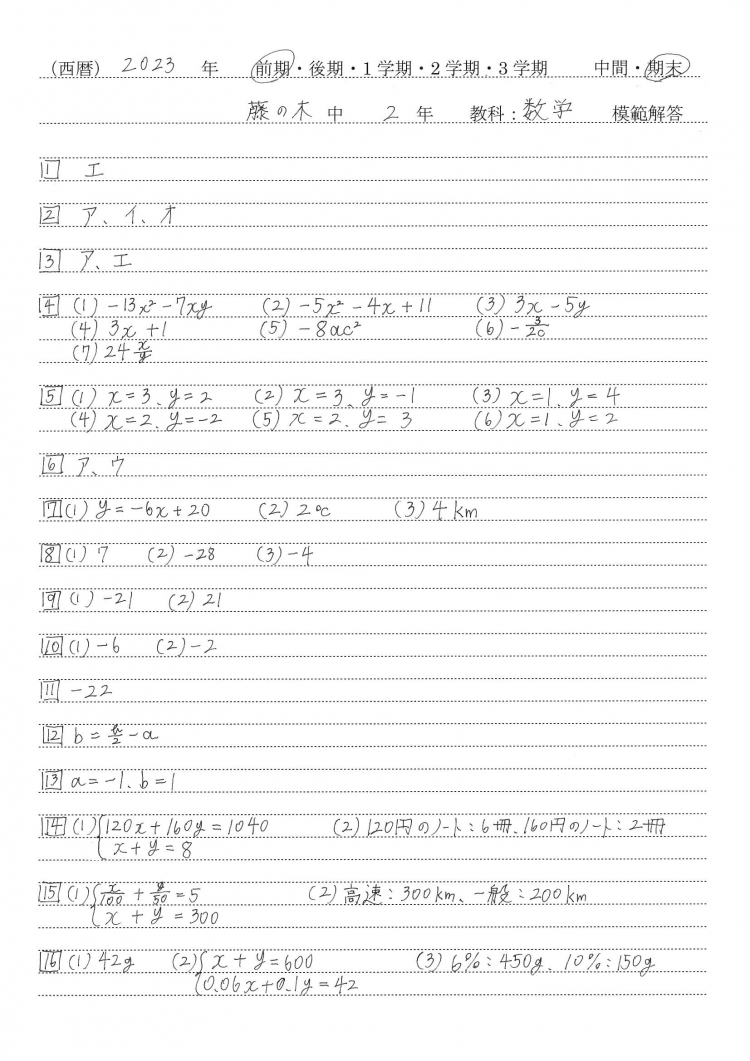 (西暦) 2023 年 前期・後期・1学期・2学期・3学期 中間・期末
藤の木 中 2 年 教科:数学 模範解答
1 エ
2 ア、イ、オ
3 ア、エ
4 (1) −13x²−7xy (2) −5x²−4x+11 (3) 3x−5y
(4) 3x+1 (5) −8ac² (6) −3/20
(7) 24 x/y
5 (1) x=3、y=2 (2) x=3、y=−1 (3) x=1、y=4
(4) x=2、y=−2 (5) x=2、y=3 (6) x=1、y=2
6 ア、ウ
7 (1) y=−6x+20 (2) 2℃ (3) 4km
8 (1) 7 (2) −28 (3) −4
9 (1) −21 (2) 21
10 (1) −6 (2) −2
11 −22
12 b= /2−a
13 a=−1、b=1
14 (1) {120x+160y=1040 (2) 120円のノート:6冊、160円のノート:2冊
x+y=8
15 (1) {x/100+y/50=5 (2) 高速:300km、一般:200km
x+y=300
16 (1) 42g (2) {x+y=600 (3) 6%:450g、10%:150g
0.06x+0.1y=42